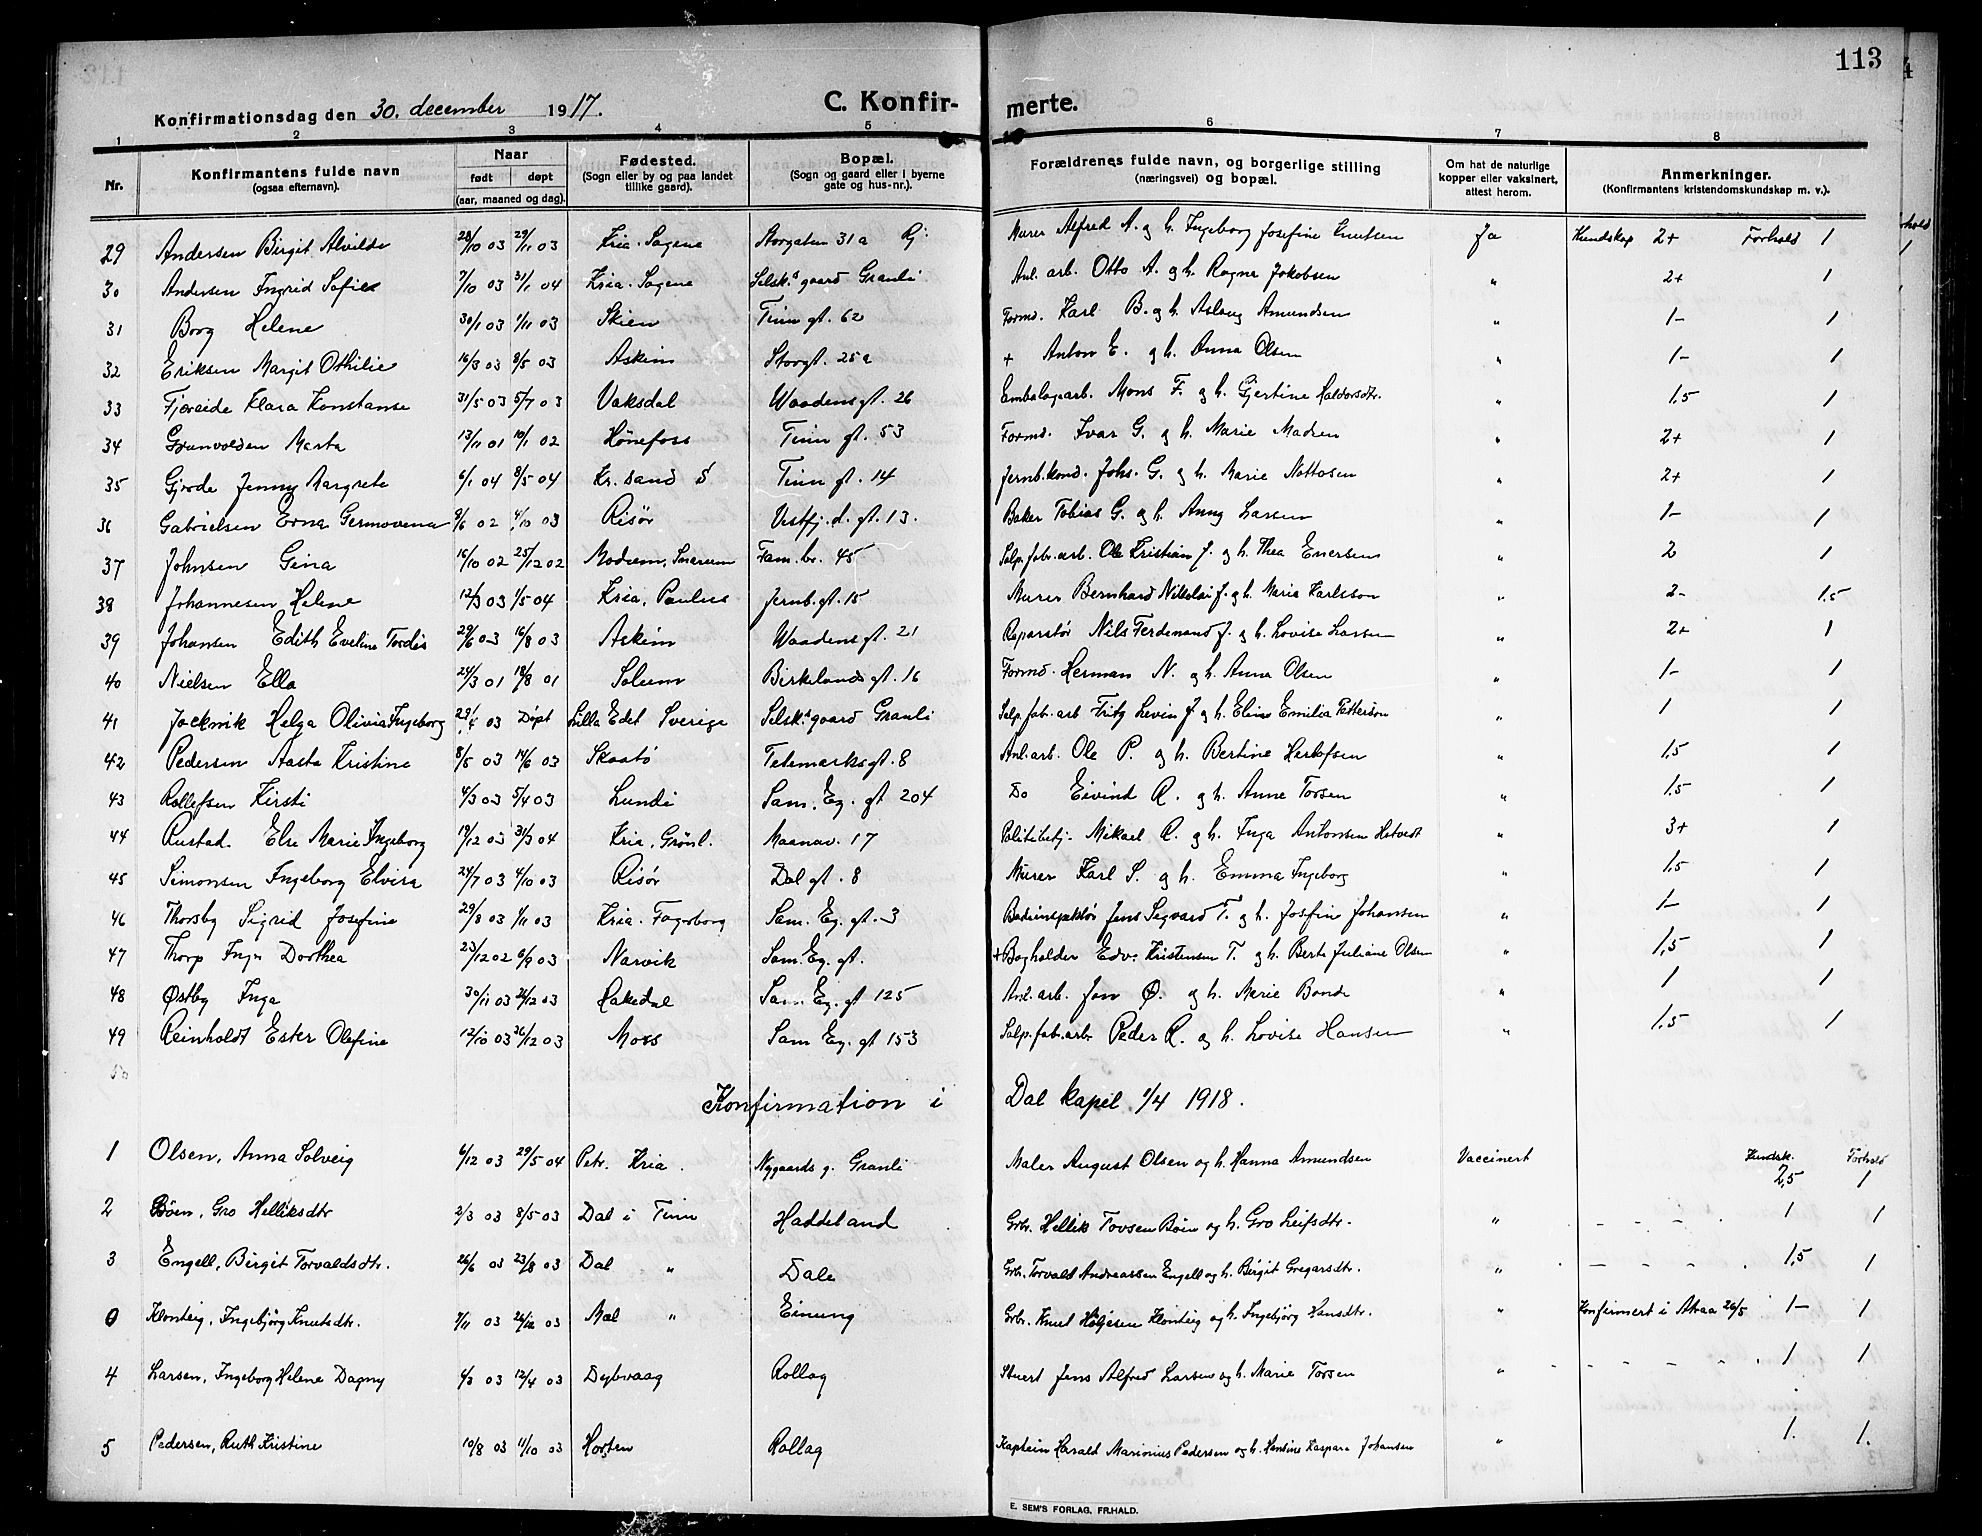 113
Konfirmationsdag den 30. december 1917. C. Konfirmerte.
1 2 3 4 5 6 7 8
Nr. Konfirmantens fulde navn (ogsaa efternavn). Naar født døpt (aar, maaned og dag). Fødested. (Sogn eller by og paa landet tillike gaard). Bopæl. (Sogn og gaard eller i byerne gate og hus-nr.). Forældrenes fulde navn, og borgerlige stilling (næringsvei) og bopæl. Om hat de naturlige kopper eller vaksinert, attest herom. Anmerkninger. (Konfirmantens kristendomskundskap m. v.).
29 Andersen Birgit Alvilde 28/10 03 29/11 03 Kria. Sagene Storgaten 31a Rj. Murer Alfred A. & h. Ingeborg Josefine Knutsen Ja Kundskap 2+ Forhold 1
30 Andersen Ingrid Sofie 7/10 03 31/1 04 Kria. Sagene Selsk.s gaard Granli Anl. arb. Otto A. og h. Ragna Jakobsen " 2+ 1
31 Borg Helene 30/1 03 1/11 03 Skien Tinn gt. 62 Formd. Karl B. og h. Aslaug Amundsen " 1- 1
32 Eriksen Margit Othilie 16/3 03 8/5 03 Askim Storgt. 25a + Anton E. og h. Anna Olsen " 1- 1
33 Fjæreide Klara Konstanse 31/5 03 5/7 03 Vaksdal Waadensgt. 26 Embalagearb. Mons F. og h. Gjertine Haldorsdtr. " 1,5 1
34 Grønvolden Marta 13/11 01 10/1 02 Hønefoss Tinn gt. 53 Formd. Ivar G. og h. Marie Madsen " 2+ 1
35 Gjrode Jenny Margrete 6/1 04 8/5 04 Kr. sand S Tinn gt. 14 Jernb.kond. Johs. G. og h. Marie Nottosen " 2+ 1
36 Gabrielsen Erna Germovena 9/6 02 4/10 03 Risør Vestfj.d. gt. 13. Baker Tobias G. og h. Anny Larsen " 1- 1
37 Johnsen Gina 16/10 02 25/12 02 Modum, Snarum Fam. br. 45 Salp.fabr.arb. Ole Kristian J. og h. Thea Enersen " 2 1
38 Johannesen Helene 12/3 03 1/5 04 Kria, Paulus Jernb.gt. 15 Murer Bernhard Nikolai J. og h. Maria Karlsson " 2- 1,5
39 Johansen Edith Eveline Tordis 29/6 03 16/8 03 Askim Waadens gt. 21 Reparatør Nils Ferdinand J. og h. Lovise Larsen " 2+ 1
40 Nielsen Ella 24/3 01 18/8 01 Solum Birkelands gt. 16 Formd. Herman N. og h. Anna Olsen " 1- 1
41 Jackwik Helga Olivia Ingeborg 23/4 03 Døpt Lilla Edet Sverige Selsk.s gaard Granli Salp.fab.arb Fritz Levin J. og h. Elina Emilia Petterson " 1 1
42 Pedersen Aasta Kristine 8/5 03 14/6 03 Skaatø Telemarksgt. 8 Anl.arb. Ole P. og h. Bertine Herlofsen " 1,5 1
43 Rollefsen Kirsti 4/3 03 5/4 03 Lunde Sam. Ey. gt 204 Do Eivind R. og h. Anne Torsen " 1,5 1
44 Rustad Else Marie Ingeborg 19/12 03 31/3 04 Kria, Grønl. Maanav. 17 Politibetj. Mikael R. og h. Inga Antonsen Hotvedt " 3+ 1
45 Simonsen Ingeborg Elvira 24/7 03 4/10 03 Risør Dal gt. 8 Murer Karl S. og h. Emma Ingeborg " 1,5 1
46 Thorsby Sigrid Josefine 29/8 03 1/11 03 Kria. Fagerborg Sam. Ey. gt. 3 Badeinspektør Jens Segvard T. og h. Josefine Johansen " 1- 1
47 Thorp Inga Dorthea 23/12 02 6/9 03 Narvik Sam. Ey. gt. + Bogholder Edv. Kristensen T. og h. Berte Juliane Olsen " 1,5 1
48 Østby Inga 30/11 03 26/12 03 Hakedal Sam. Ey. gt 125 Anl. arb. Jon Ø. og h. Marie Bonde " 1 1
49 Reinholdt Ester Olefine 12/10 03 26/12 03 Moss Sam Ey. gt 153 Salp.fab.arb. Peder R. og h. Lovise Hansen " 1,5 1
50
Konfirmation i Dal kapel 1/4 1918.
1 Olsen, Anna Solveig 6/12 03 29/5 04 Petr. Kria. Nygaards g. Granli Maler August Olsen og h. Hanna Amundsen Vaccinert Kundsk. 2,5 Forhold 1
2 Bøen, Gro Helliksdtr 2/3 03 8/5 03 Dal i Tinn Haddeland Grbr. Hellik Tovsen Bøen og h. Gro Leifsdtr. " 1 1
3 Engell, Birgit Torvaldsdtr. 26/6 03 23/8 03 Dal " Dale Grbr. Torvald Andreassen Engell og h. Birgit Gregarsdtr. " 1,5 1
0 Klonteig, Ingebjørg Knutsdtr. 7/11 03 26/12 03 Mæl " Einung Grbr. Knut Høljesen Klonteig og h. Ingebjørg Hansdtr. " Konfirmert i Atraa 26/5 1- 1
4 Larsen, Ingeborg Helene Dagny 6/3 03 12/4 03 Dybvaag Rollag Stuert Jens Alfred Larsen og h. Marie Torsen " 1 1
5 Pedersen, Ruth Kristine 10/8 03 11/10 03 Horten Rollag Kaptein Harald Marionius Pedersen og h. Hansine Kaspara Johansen " 1. 1.
E. SEM'S FORLAG, FR.HALD.